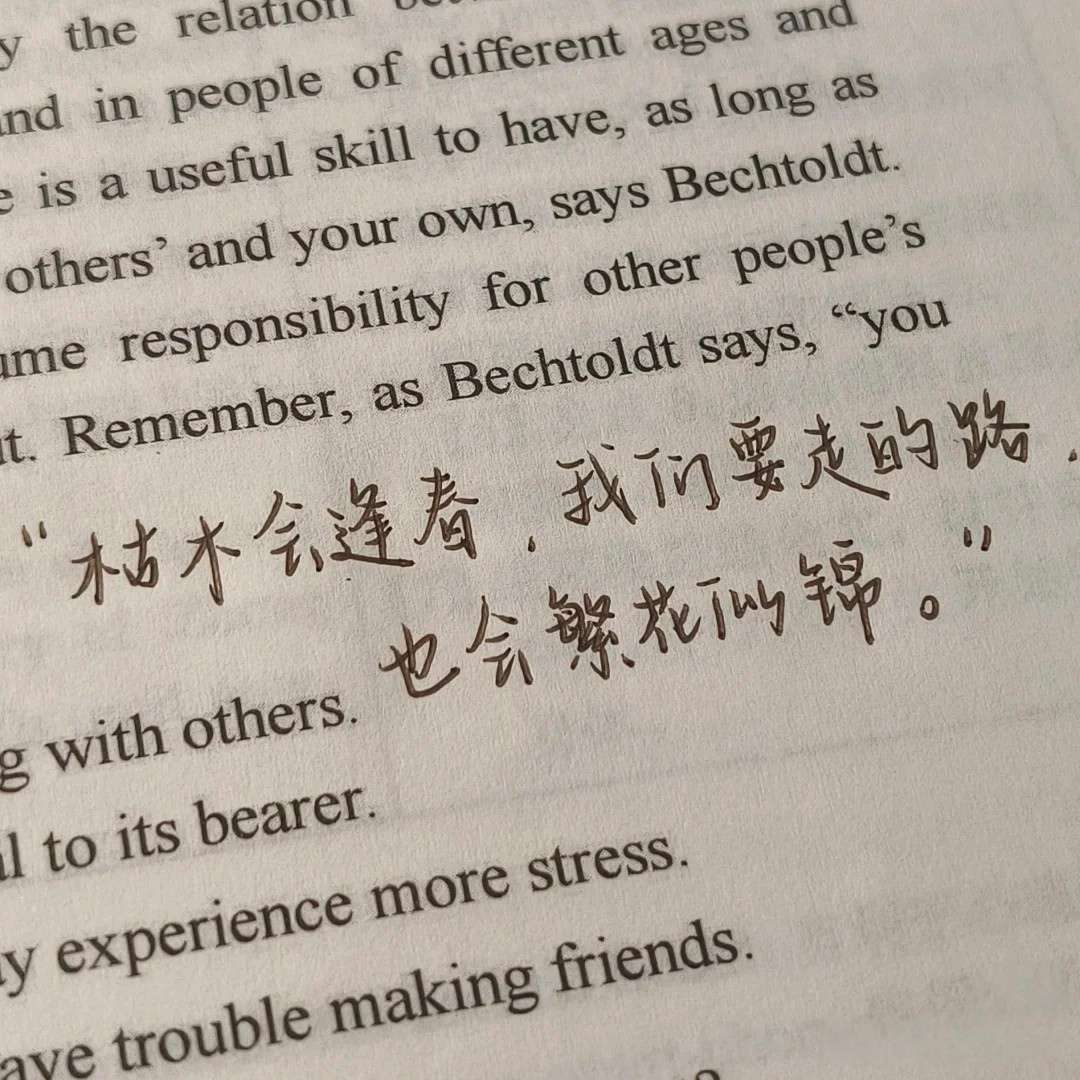 the relation
in people of different ages and
is a useful skill to have, as long as
others’ and your own, says Bechtoldt.
responsibility for other people’s
Remember, as Bechtoldt says, “you
“枯木会逢春，我们要走的路，
也会繁花似锦。”
with others.
to its bearer.
experience more stress.
trouble making friends.